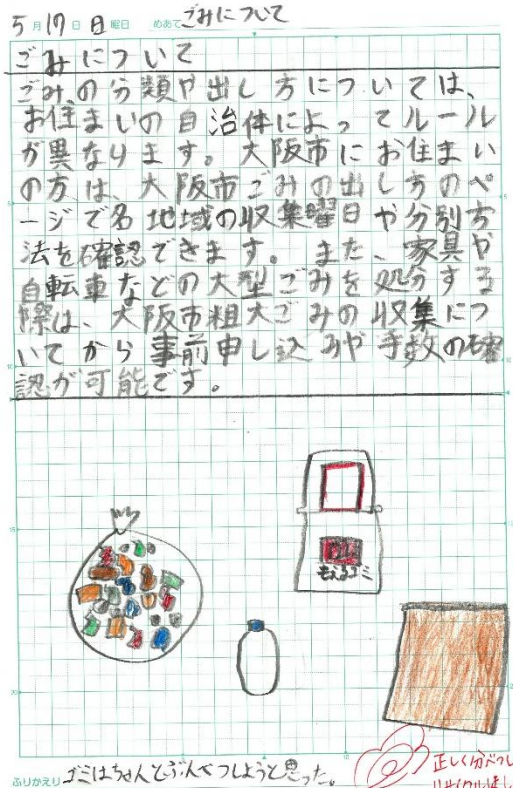 5月17日日曜日 めあて ごみについて
ごみについて
ごみの分類や出し方については、
お住まいの自治体によってルール
が異なります。大阪市にお住まい
の方は、大阪市ごみの出し方のペ
ージで名地域の収集曜日や分別方
法を確認できます。また、家具や
自転車などの大型ごみを処分する
際は、大阪市粗大ごみの収集につ
いてから事前申し込みや手数の確
認が可能です。
もえるゴミ
ふりかえり ゴミはちゃんとぶんべつしようと思った。
正しく分べつし